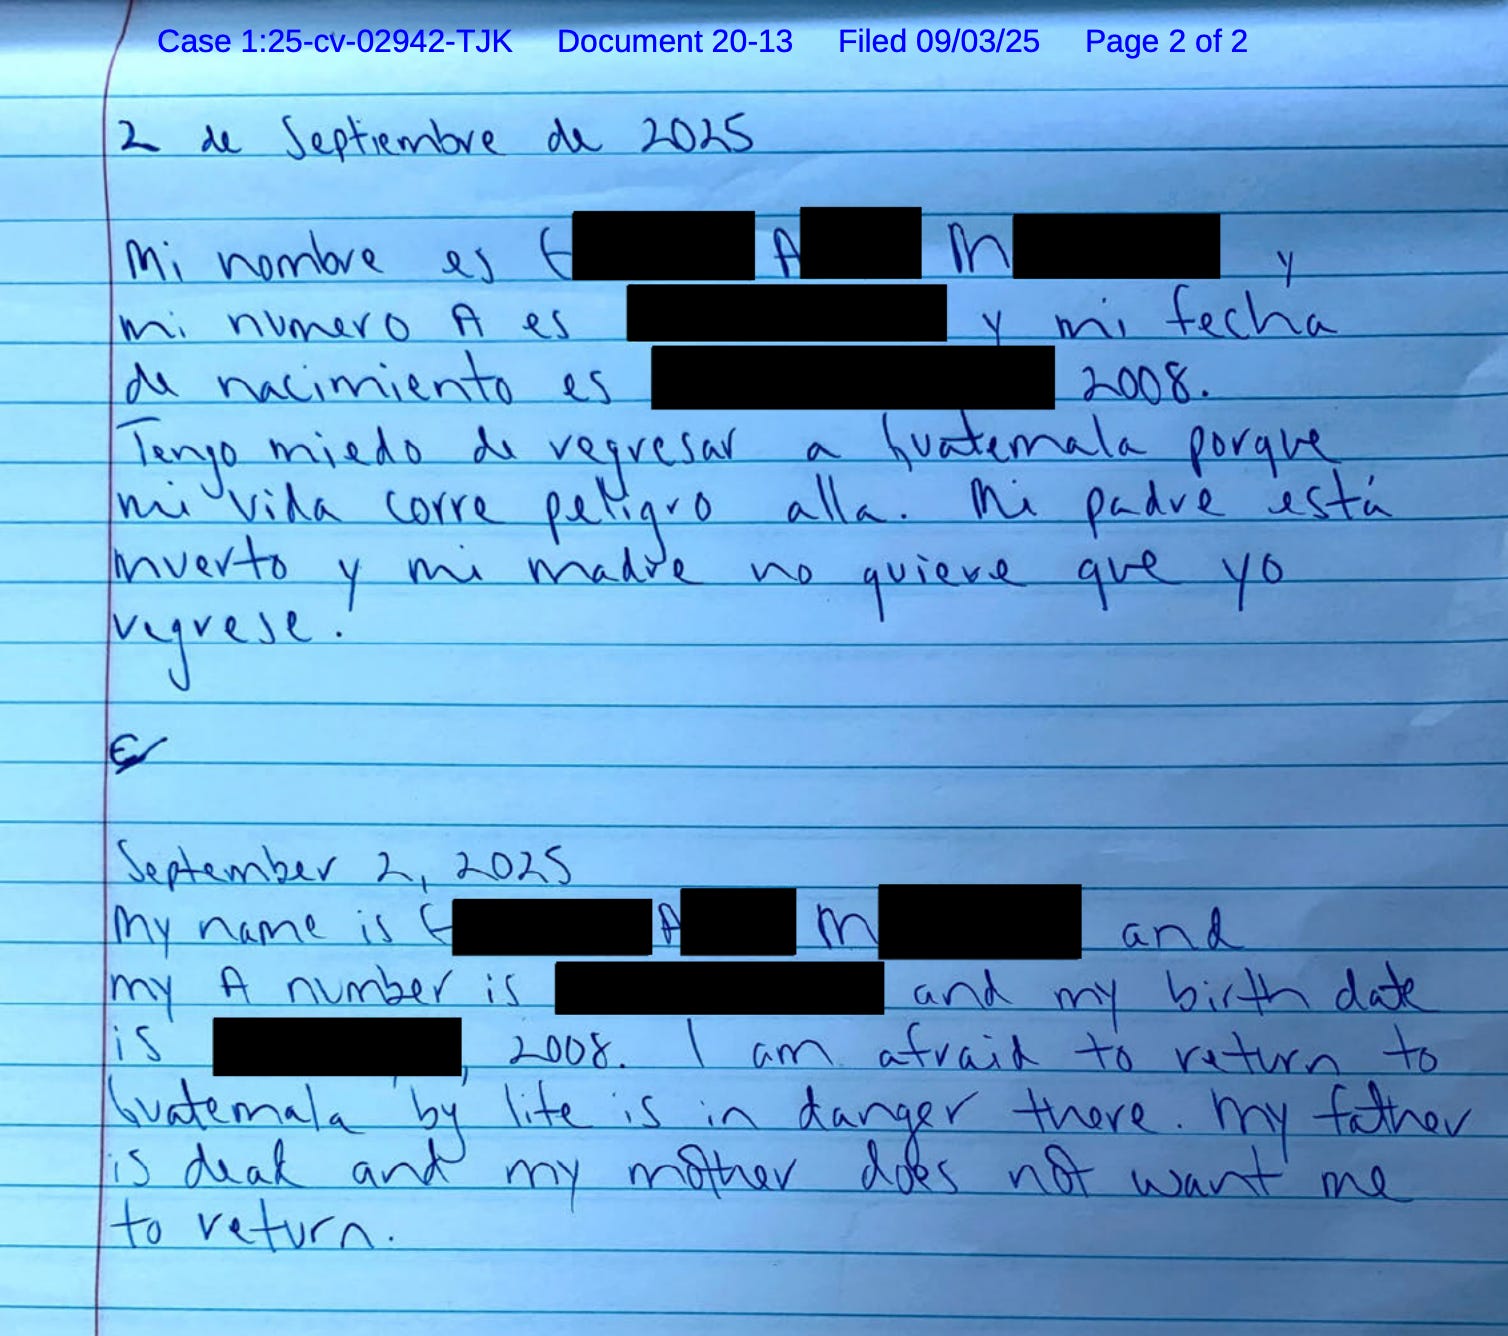 Case 1:25-cv-02942-TJK Document 20-13 Filed 09/03/25 Page 2 of 2
2 de Septiembre de 2025
Mi nombre es E A M y
mi numero A es y mi fecha
de nacimiento es 2008.
Tengo miedo de regresar a Guatemala porque
mi vida corre peligro alla. Mi padre está
muerto y mi madre no quiere que yo
regrese.
September 2, 2025
My name is E A M and
my A number is and my birth date
is , 2008. I am afraid to return to
Guatemala by life is in danger there. My father
is dead and my mother does not want me
to return.